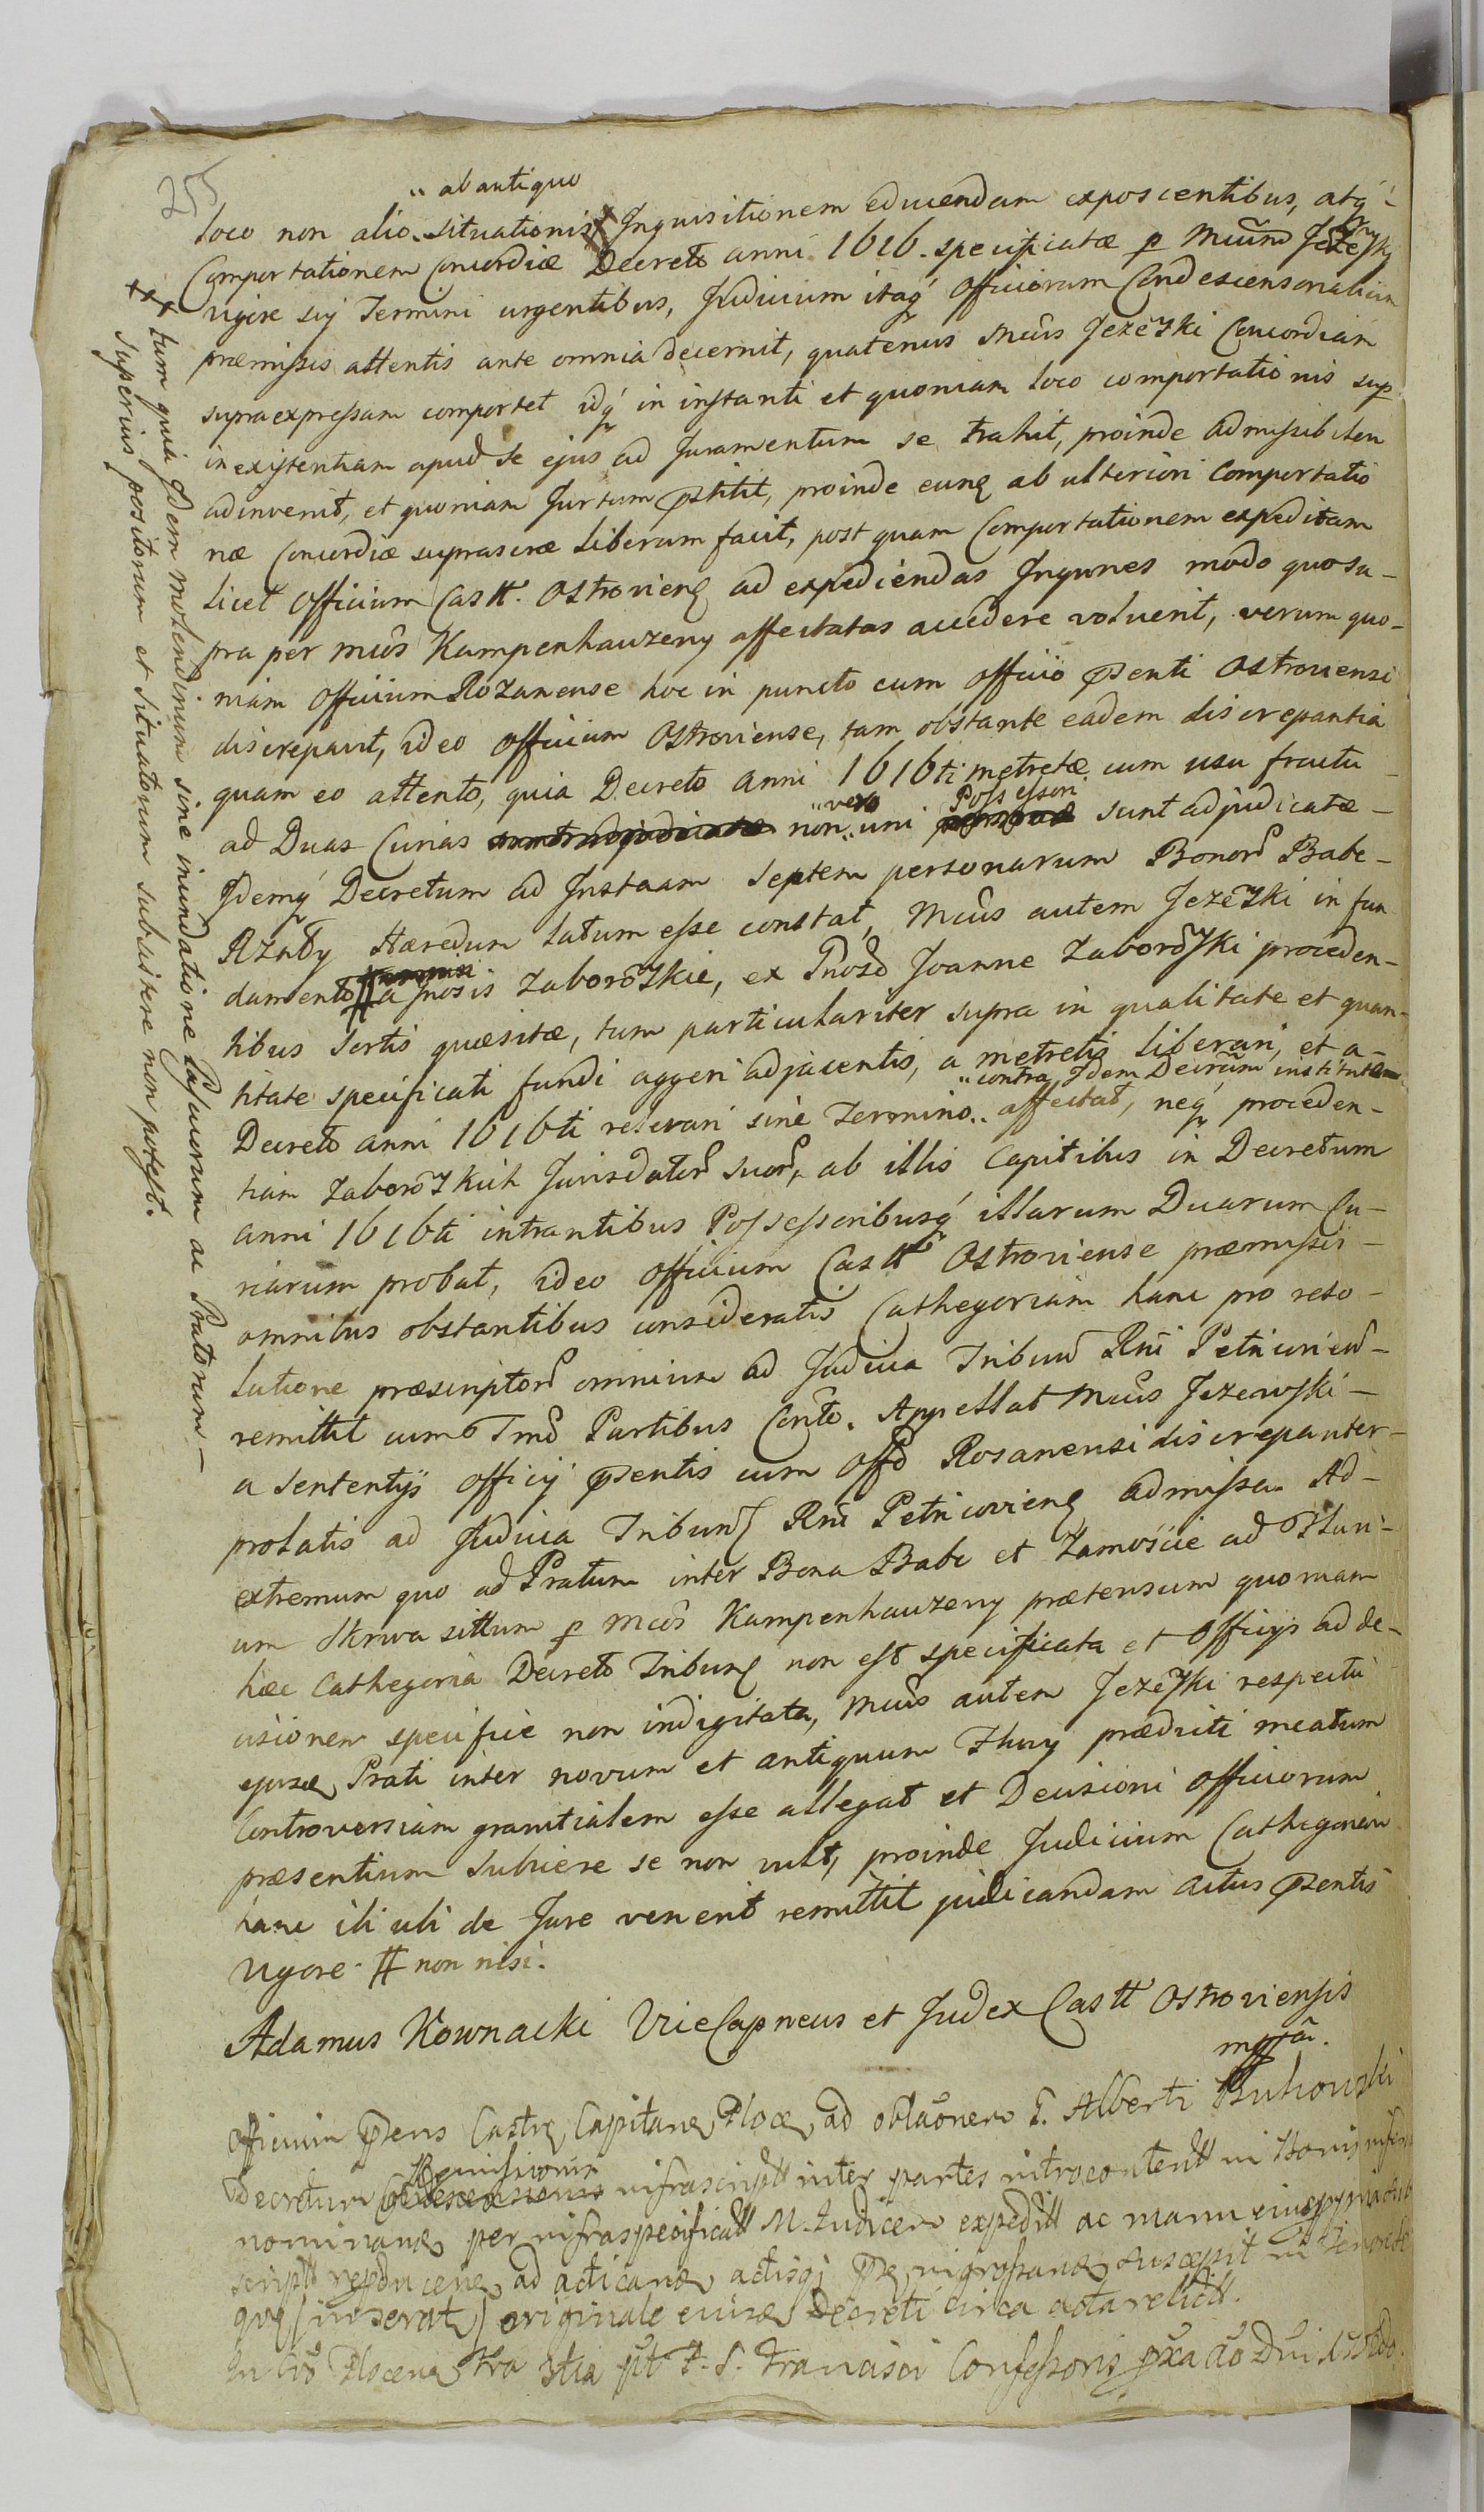 255
" ab antiquo
loco non alio situationis Inquisitionem educendam exposcentibus, atq́
Comportationem Concordiæ Decreto anni 1616. specificatæ p Mcum Jeżeski
vigore sui Termini urgentibus, Judicium itaq́ officiorum Condescensonalium
præmissis attentis ante omnia decernit, quatenus Mcus Jeżeski Concordiam
supra expressam comportet idq́ in instanti et quoniam loco comportationis sup
inexistentiam apud se ejus ad Juramentum se trahit, proinde admissibilem
adinvenit, et quoniam Jurtum pstitit, proinde eunq ab ulteriori Comportatio
næ Concordiæ suprascræ liberum facit, post quam Comportationem expeditam
licet Officium Castt. Ostrovienq ad expediendas Inqunes modo quo su-
pra per mcos Kampenhauzeny affectatas accedere voluerit, verum quo-
niam Officium Rozanense hoc in puncto cum officio psenti Ostroviensi
discrepavit, ideo officium Ostroviense, tam obstante eadem discrepantia
quam eo attento, quia Decreto anni 1616ti metretæ cum usu fructu
ad Duas Curias non " vero uni Possessori sunt adjudicatæ -
Idemq́ Decretum ad Instaam septem personarum Bonor Babe-
Rzędy Hæredum latum esse constat, Mcus autem Jeżeski in fun-
damento # a Gnosis Zaboroskie, ex Gnoso Joanne Zaboroski proceden-
tibus sortis quæsitæ, tum particulariter supra in qualitate et quan-
titate specificati fundi aggeri adjacentis, a metretis liberari, et a
Decreto anni 1616ti relevari sine Termino " contra Idem Decrum instituto affectat, neq́ proceden-
tiam Zaboroskich Jurisdator suor, ab illis Capitibus in Decretum
anni 1616ti intrantibus Possessoribusq́ illarum Duarum Cu-
riarum probat, ideo officium Castt Ostroviense præmissis -
omnibus obstantibus consideratis Cathegoriam hanc pro reso-
lutione præscriptor omnium ad Judicia Tribun Rni Petricovien -
remittit cum Tmo Partibus Conto. Appellat Mcus Jezewski -
a sententys officij psentis cum offo Rosanensi discrepanter -
prolatis ad Judicia Tribunq Rni Petricovienq admissa. Ad-
extremum quo ad Pratum inter Bona Babe et Zamoście ad Fluvi-
um Skrwa sittum p mcos Kampenhauzeny prætensum quoniam
hæc Cathegoria Decreto Tribunq non est specificata et officijs ad de-
cisionem specifice non indigitata, Mcus autem Jeżeski respectu
ejusq Prati inter novum et antiquum Fluvy prædicti meatum
Controversiam granitialem esse allegat et Decisioni officiorum
præsentium subiicere se non vult, proinde Judicium Cathegoriam
hanc ibi ubi de Jure venerit remittit judicandam actus psentis
vigore. # non nisi.
Adamus Kownacki ViceCapneus et Judex Castt Ostroviensis
mppa.
Officium psens Castrq Capitanq Plocq ad oblaonem G. Alberti Bukowski
Decretum Remissionis infrascriptt inter partes introcontentt in Bonis infra
nominanq per infraspecificatt M. Judicem expeditt ac manu eiusq
scriptt reproducenq ad acticanq actisq ps ingrossanq suscepit
(inserat) originale eiusq Decreti circa acta relictt.
*** tum quia Idem molendinum sine inundatione Pascuorum ac Pratorum -
superius positorum et situatorum subsistere non potest.